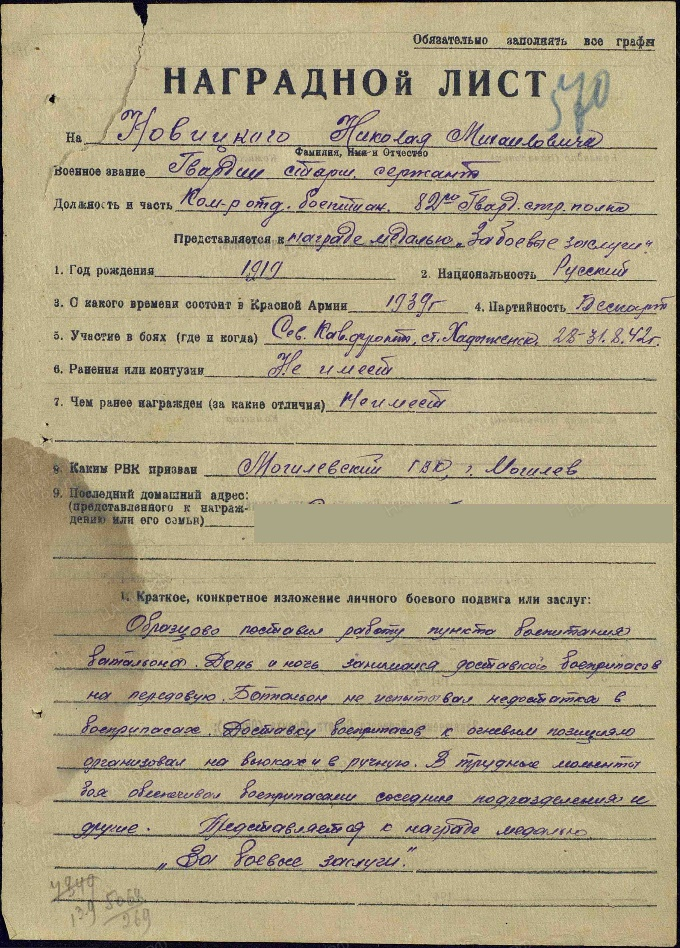 Обязательно заполнять все графы
НАГРАДНОй ЛИСТ
570
На Новицкого Николая Михайловича
Фамилия, Имя и Отчество
Военное звание Гвардии старш. сержант
Должность и часть Ком-р отд. боепитан. 82го Гвард. стр. полка
Представляется к награде медалью „За боевые заслуги“
1. Год рождения 1919 2. Национальность Русский
3. С какого времени состоит в Красной Армии 1939г 4. Партийность Беспарт
5. Участие в боях (где и когда) Сев. Кав. фронт, ст. Хадыженск. 28-31.8.42г.
6. Ранения или контузии Не имеет
7. Чем ранее награжден (за какие отличия) Не имеет
8. Каким РВК призван Могилевский ГВК, г. Могилев
9. Последний домашний адрес:
(представленного к награж-
дению или его семьи)
1. Краткое, конкретное изложение личного боевого подвига или заслуг:
Образцово поставил работу пункта боепитания
батальона. День и ночь занимался доставкой боеприпасов
на передовую. Баттальон не испытывал недостатка в
боеприпасах. Доставку боеприпасов к огневым позициям
организовал на вьюках и в ручную. В трудные моменты
боя обеспечивал боеприпасами соседние подразделения и
другие. Представляется к награде медалью
„За боевые заслуги“.
139 5068
269